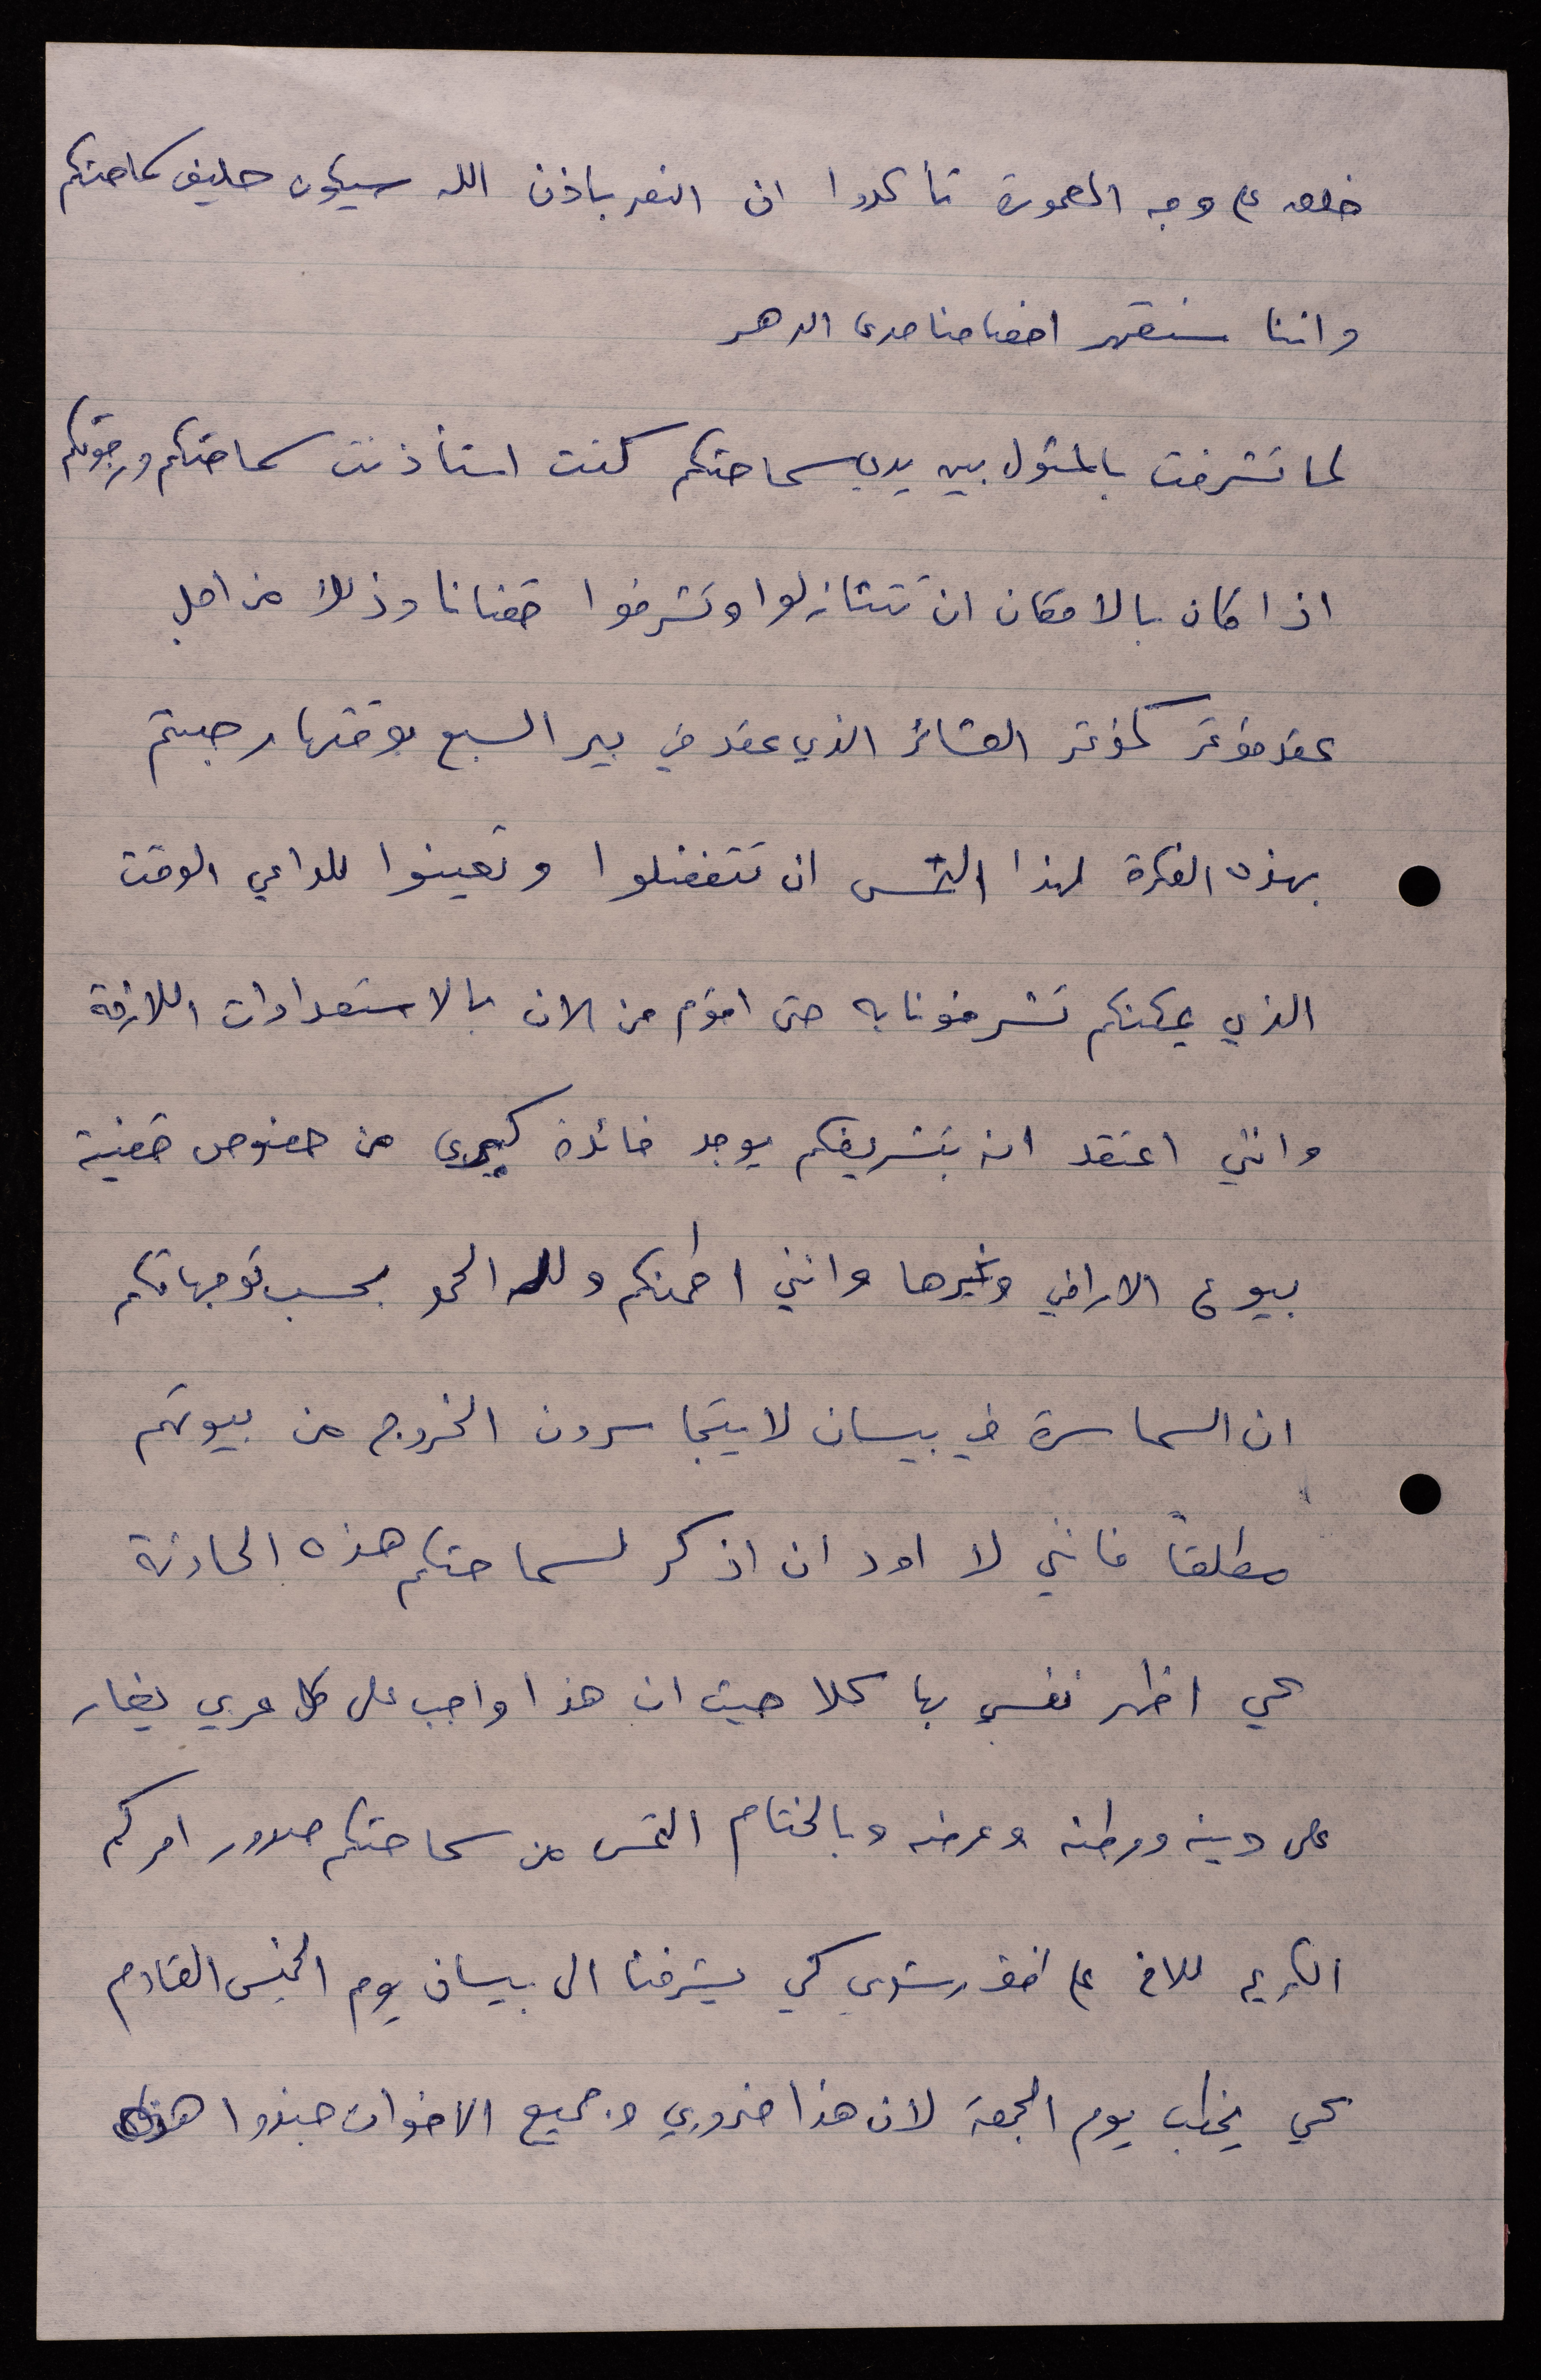 خلقه على وجه المعمورة تأكدوا ان النصر باذن الله سيكون حليف سماحتكم
واننا سنقهر اخصامنا مدى الدهر
لما تشرفت بالمثول بين يدي سماحتكم كنت استأذنت سماحتكم ورجوتكم
اذا كان بالامكان ان تتنازلوا وتشرفوا قضانا وذلك من اجل
عقد مؤتمر كمؤتمر العشائر الذي عقد في بير السبع بوقتها رحبتم
بهذه الفكرة لهذا التمس ان تتفضلوا وتعينوا للداعي الوقت
الذي يمكنكم تشرفونا به حتى اقوم من الان بالاستعدادات اللازمة
وانني اعتقد انه بتشريفكم يوجد فائدة كبرى من خصوص قضية
بيوع الاراضي وغيرها وانني اطمنكم ولله الحمد بحسب توجهاتكم
ان السماسرة في بيسان لا يتجاسرون الخروج من بيوتهم
مطلقاً فانني لا اود ان اذكر لسماحتكم هذه الحادثة
كي اظهر نفسي بها كلا حيث ان هذا واجب على كل عربي يغار
على دينه ووطنه وعرضه وبالختام التمس من سماحتكم صدور امركم
الكريم للاخ رشدي كي يشرفنا الى بيسان يوم الخميس القادم
كي يخطب يوم الجمعة لان هذا ضروري وجميع الاخوان حبذوا هذه